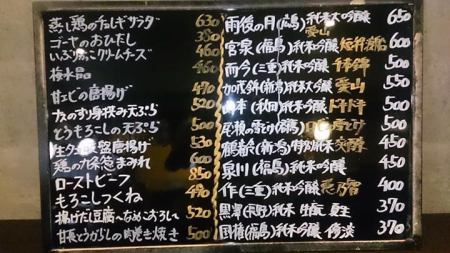 蒸し鶏のチョレギサラダ 630
ゴーヤのおひたし 380
いぶりがっこクリームチーズ 460
梅水晶 460
甘エビの唐揚げ 470
なすのすり身挟み天ぷら 520
とうもろこしの天ぷら 500
唐揚げ 530
鶏の九条葱まみれ 600
ローストビーフ 850
もろこしつくね 490
揚げだし豆腐〜なめこおろし〜 520
甘長とうがらしの肉巻き焼き 500
雨後の月 純米大吟醸 愛山 650
宮泉(福島)純米吟醸 600
而今(三重)純米吟醸 千本錦 500
加茂錦(新潟)純米大吟醸 愛山 550
山本(秋田)純米吟醸 ドキドキ 550
500
鶴齢(新潟)特別純米 450
泉川(福島)純米吟醸 450
作(三重)純米吟醸 恵乃智 400
黒澤(長野)純米 生酛 夏生 370
国権(福島)純米吟醸 370